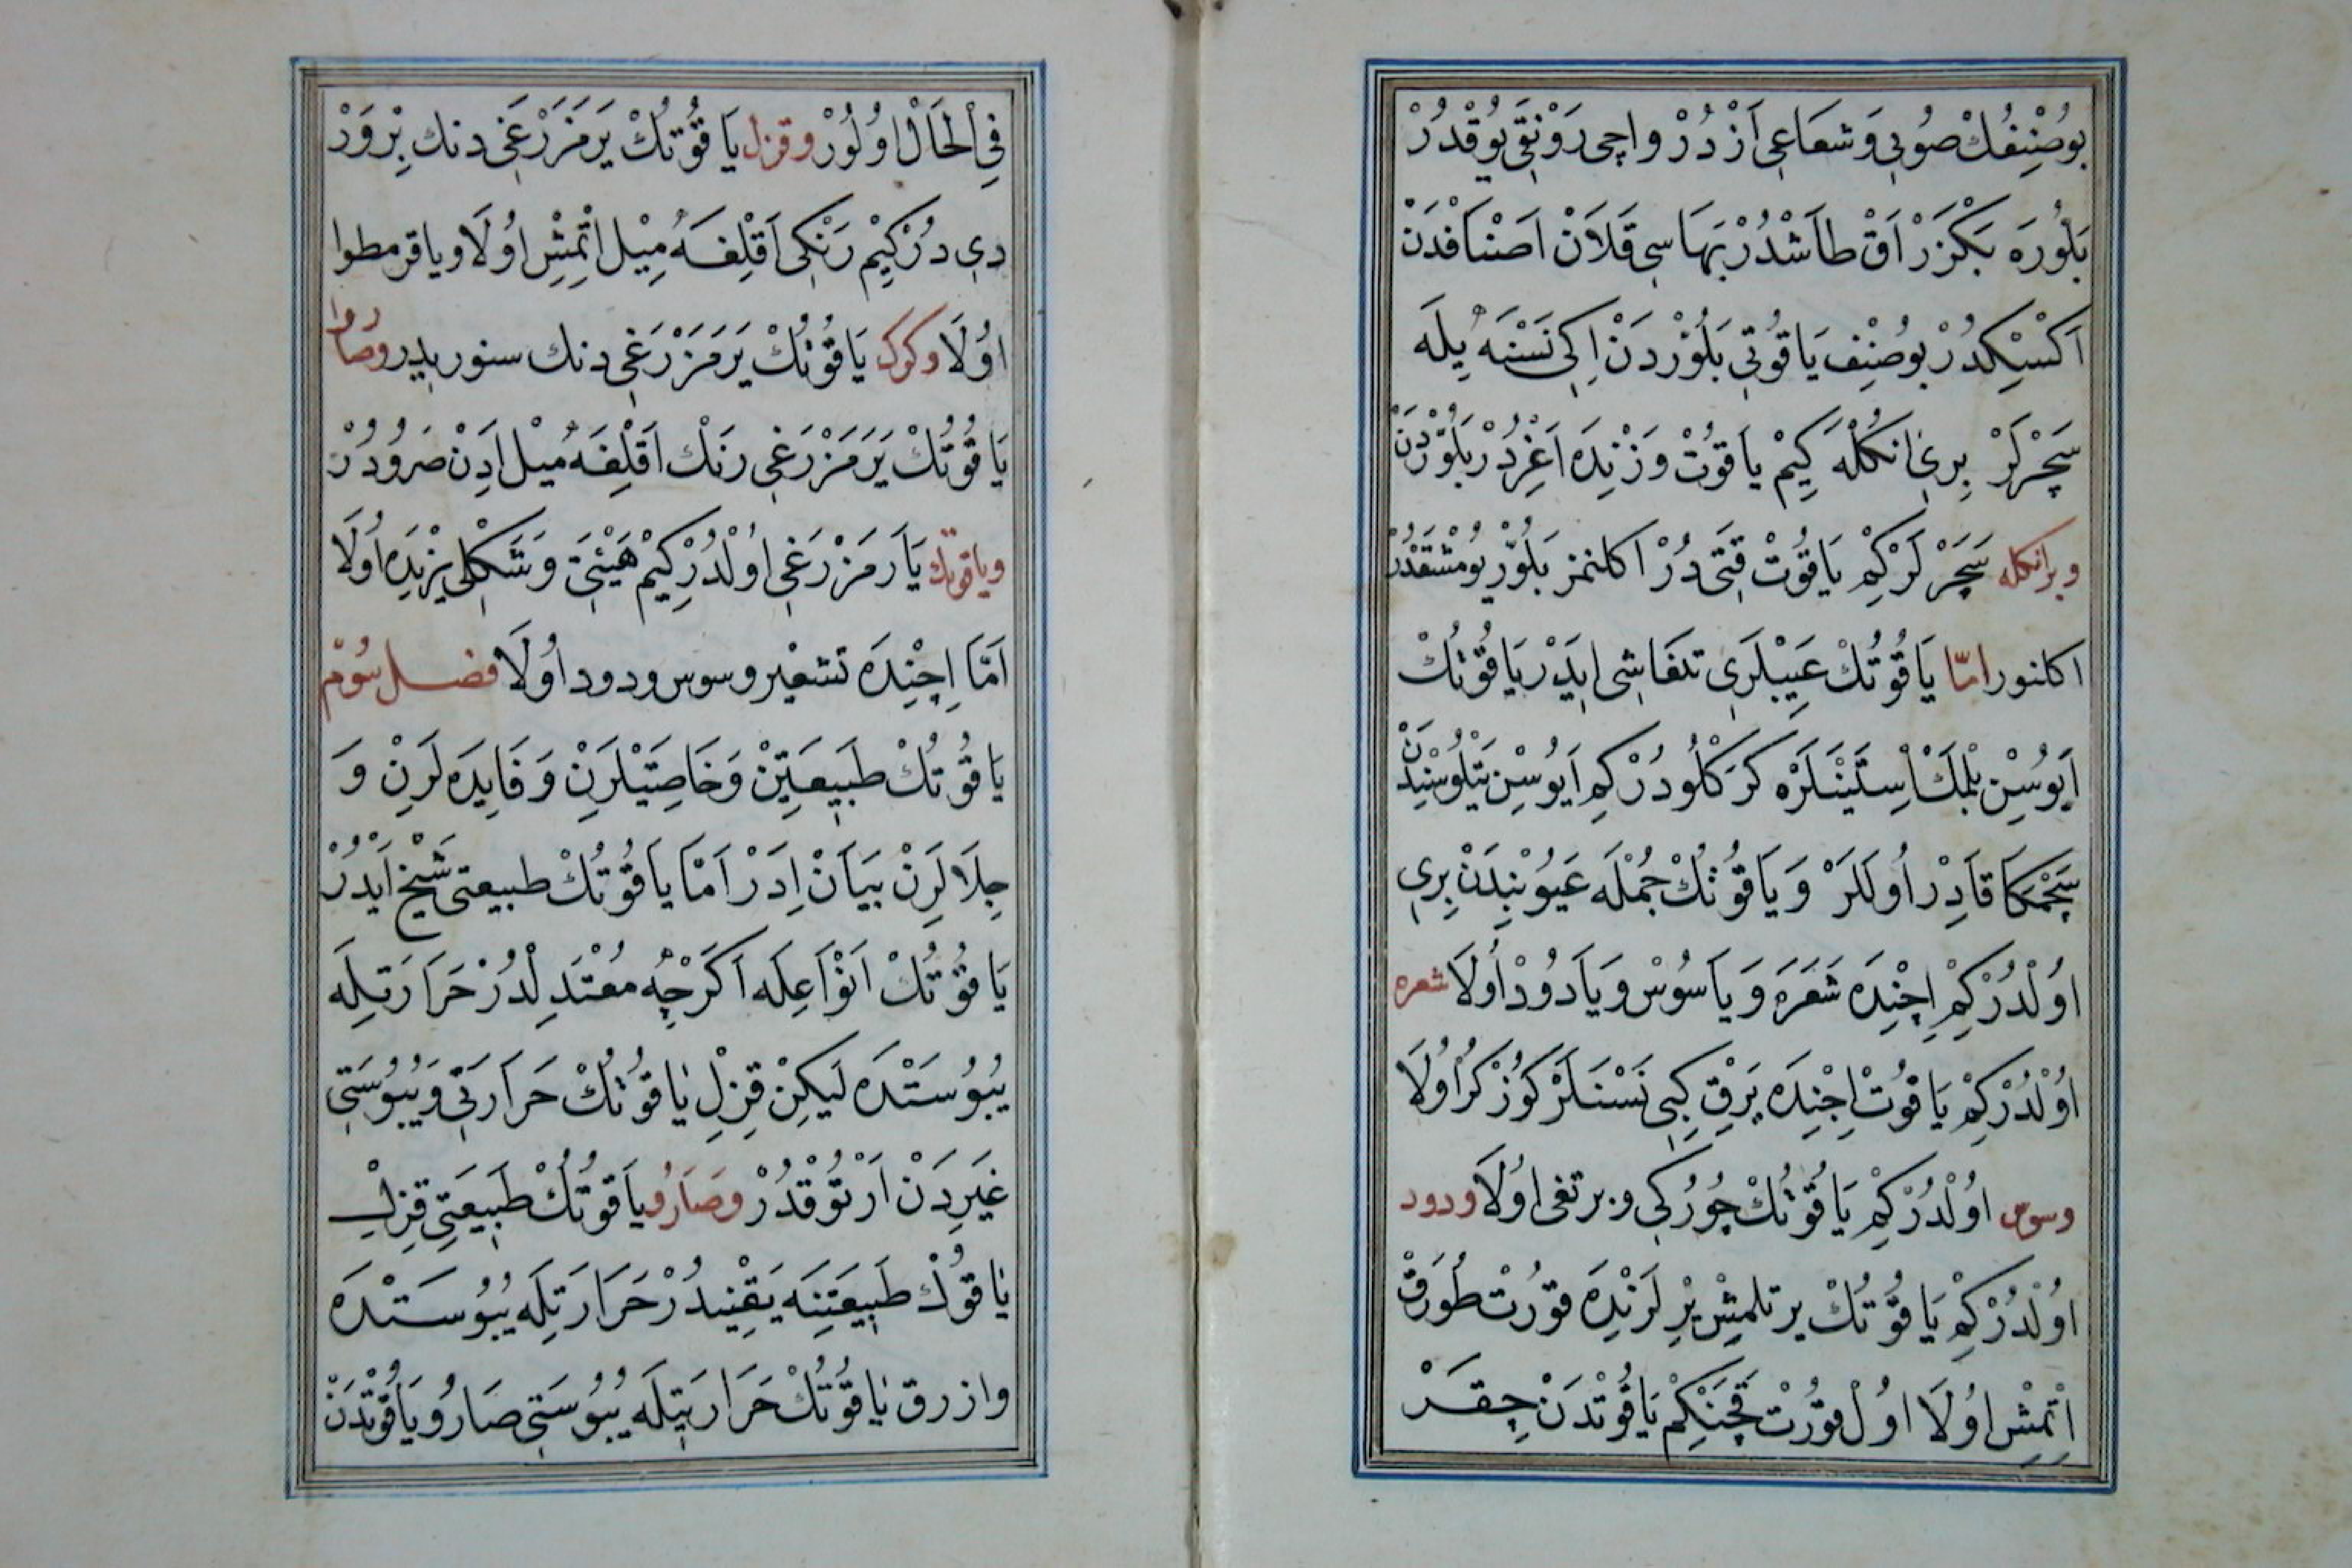 بُوصُنِفُكْ صُوبِي وَشُعَاعِي اَزْدُرْ واِچِي رَوْنَقِي يُوقْدُرْ
بَلُّورَه بَكْزَرْ اَقْ طَاشْدُرْ بَهَاسِي قَلَانْ اَصْنَافْدَنْ
اَكْسِيْكْدُرْ بُوصِنِف يَاقُوتِي بَلُّوْرْدَنْ اِكِي نَسْنَه يِلَه
سَچَرْلَرْ بِرِي انكْلَه كِيمْ يَاقُوتْ وَزْنِدَه اَغِرْدُرْ بَلُّوْرْدَنْ
وبرانكله سَچَرْلَرْكِمْ يَاقُوتْ قَتِي دُرْ اكلنمز بَلُّوْرْ يُومْشَقْدُرْ
اكلنور امّا يَاقُوتُكْ عَيِبْلَرِي تفاشى اِيَدْر يَاقُوتُكْ
اَيُوسِن بِلْمَكْ اِسْتَيَنْلَرَه كَرَكْلُودُرْكِمْ اَيُوسِن يَتْلُوسْنِدَنْ
سَچْمَكَا قَادِرْ اُولَلَرْ وَيَاقُوتُكْ جُمْلَه عَيُوبِنْدَنْ بِرِي
اُوْلْدُرْكِمْ اِچِنْدَه شَعَرَه وَيَاسُوسْ وَيَادُودْ اُولَا شعره
اُوْلْدُرْكِمْ يَاقُوتْ اِچِنْدَه يَرْقِ كِبِي نَسْنَلَرْ كُوزْكُرْ اُولَا
وسوس اُوْلْدُرْكِمْ يَاقُوتُكْ چُورُكِي و يرتغى اُولَا ودود
اُوْلْدُرْكِمْ يَاقُوتُكْ يرتلمِشْ يِرْلَرِنْدَه قُورُتْ طُورَقْ
اِتْمِشْ اُولَا اُوْلْ قُورُتْ قَچَنْكِمْ يَاقُوتْدَنْ چِقَرْ
فِي الْحَالْ اُولُورْ وقزل يَاقُوتُكْ يَرَمَزْرَغِي دنك بِرْوَرْ
دِى دُرْكِيمْ رَنْكِي اَقْلِغَه مِيْل اِتْمِشْ اُولَا وياقرمطوا
اُولَا وكوك يَاقُوتُكْ يَرَمَزْرَغِي دنك سنور بدر وصارو
يَاقُوتُكْ يَرَمَزْرَغِي رَنْك اَقْلِغَه مِيْل اِدِنْ صَرُودُرْ
وياقوتك يَارَمَزْرَغِي اُوْلْدُرْكِيمْ هَيْئَتِي وَشَكْلِي يِزْيِدَه اُولَا
اَمَّا اِچِنْدَه تشعير وسوس ودود اُولَا فصل سُوُم
يَاقُوتُكْ طَبِيعَتِينْ وَخَاصِيَتْلَرِنْ وَفَايِدَه لَرِنْ وَ
جِلَالَرِنْ بَيَانْ اِدَرْ اَمَّا يَاقُوتُكْ طبيعتى شَيْخْ اَيْدُرْ
يَاقُوتُكْ اَنْوَاعِلَه اَكَرْچِه مُعْتَدِلْدُرْ حَرَارَتِلَه
يُبُوسَتْدَه لَيكِنْ قِزِلْ يَاقُوتُكْ حَرَارَتِي وَيُبُوسَتِي
غَيْرِدَنْ اَرْتُوقْدُرْ وصَارُو يَاقُوتُكْ طَبِيعَتِي قِزِلْ
يَاقُوتُكْ طَبِيعَتِنَه يَقِيْندُرْ حَرَارَتِلَه يُبُوسَتْدَه
وازرق يَاقُوتُكْ حَرَارَتِيلَه يُبُوسَتِي صَارُو يَاقُوتْدَنْ